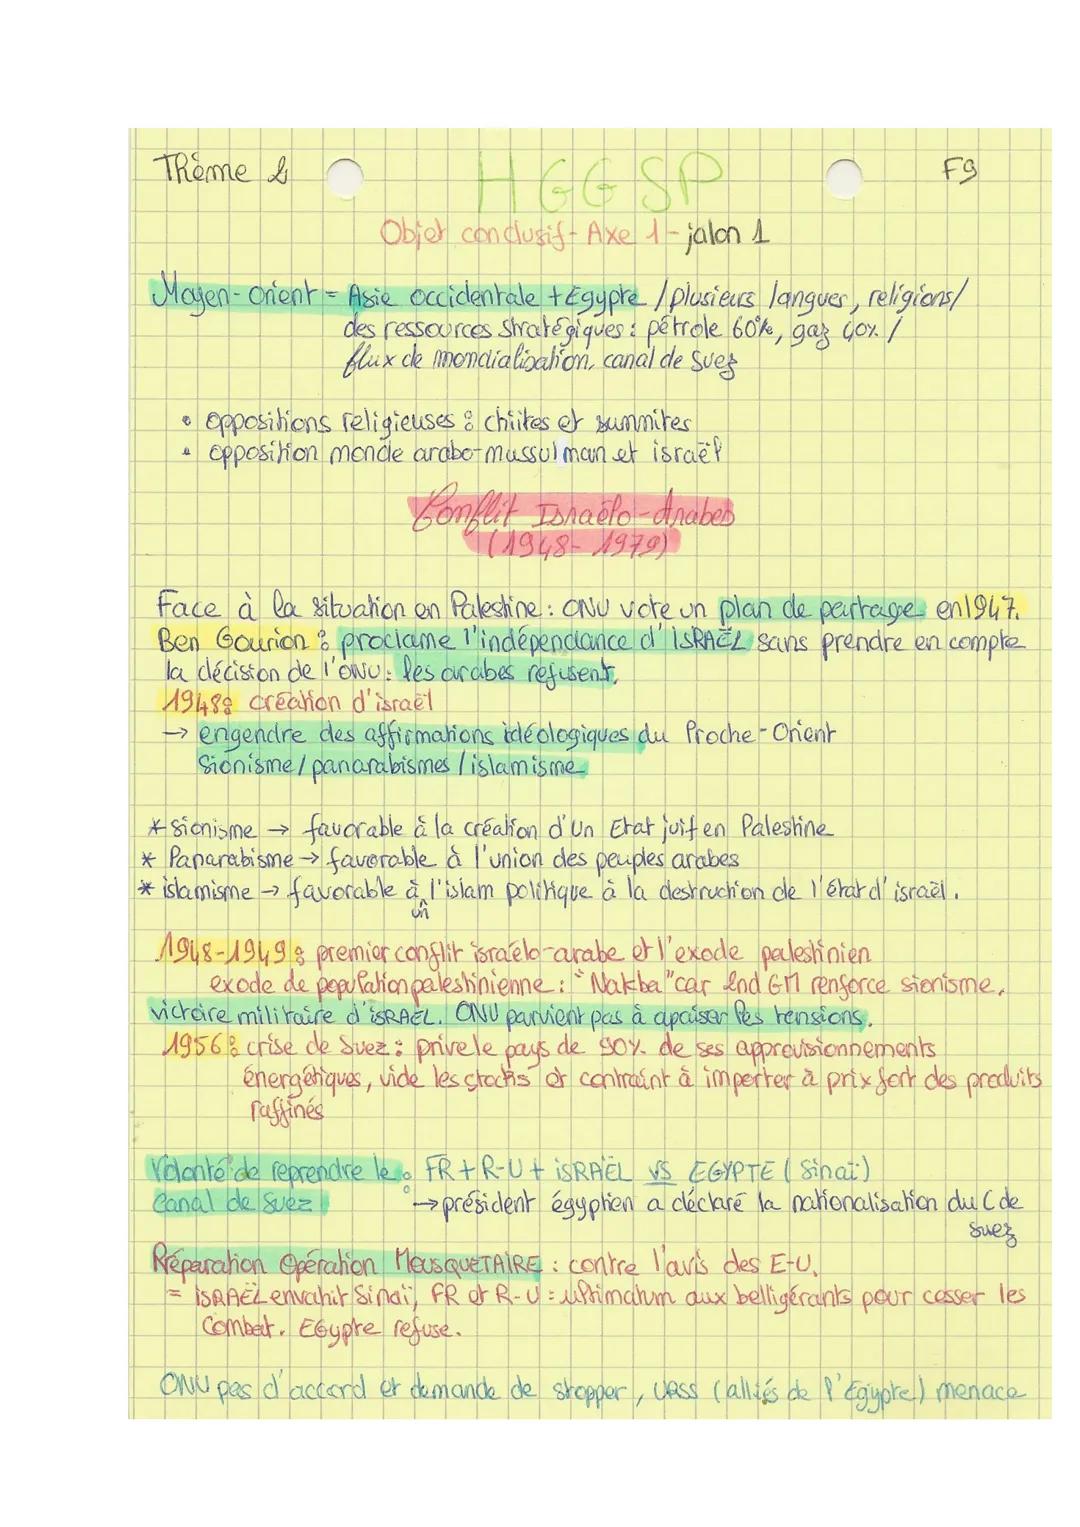 Thème 2
HGGSP
F9
Objet conclusif - Axe 1 - jalon 1
Moyen-Orient = Asie occidentale + Egypte / plusieurs langues, religions /
des ressources stratégiques : pétrole 60%, gaz 40% /
flux de mondialisation, canal de Suez
• oppositions religieuses : chiites et sunnites
• opposition monde arabo-mussulman et israël
Conflit Israélo-Arabes
(1948-1979)
Face à la situation en Palestine : ONU vote un plan de partage en 1947.
Ben Gourion : proclame l'indépendance d'ISRAËL sans prendre en compte
la décision de l'ONU : les arabes refusent.
1948 : création d'israël
→ engendre des affirmations idéologiques du Proche-Orient
Sionisme / panarabismes / islamisme
* sionisme → favorable à la création d'un Etat juif en Palestine
* Panarabisme → favorable à l'union des peuples arabes
* islamisme → favorable à l'islam politique à la destruction de l'état d'israël.
un
1948-1949 : premier conflit israélo-arabe et l'exode palestinien
exode de population palestinienne : "Nakba" car 2nd GM renforce sionisme,
victoire militaire d'ISRAËL. ONU parvient pas à apaiser les tensions.
1956 : crise de Suez : prive le pays de 90% de ses approvisionnements
énergétiques, vide les stocks et contraint à importer à prix fort des produits
raffinés
Volonté de reprendre le : FR + R-U + iSRAËL VS EGYPTE (Sinaï)
Canal de Suez
→ président égyptien a déclaré la nationalisation du C de
Suez
Préparation Opération MOUSQUETAIRE : contre l'avis des E-U.
= ISRAËL envahit Sinaï, FR et R-U : ultimatum aux belligérants pour cesser les
combat. Egypte refuse.
ONU pas d'accord et demande de stopper, URSS (alliés de l'Egypte) menace